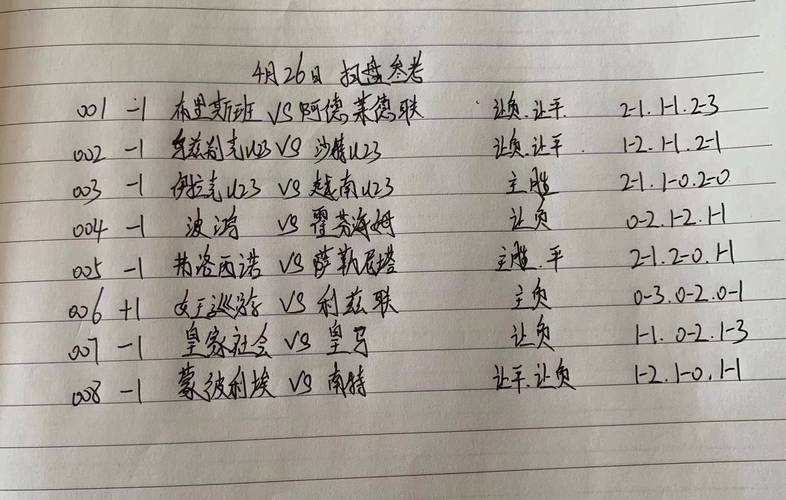 4月26日 扫盘参考
001 -1 布里斯班 VS 阿德莱德联 让负.让平 2-1.1-1.2-3
002 -1 乌兹别克U23 VS 沙特U23 让负.让平. 1-2.1-1.2-1
003 -1 伊拉克U23 VS 越南U23 主胜 2-1.1-0.2-0
004 -1 波鸿 VS 霍芬海姆 让负 0-2.1-2.1-1
005 -1 弗洛西诺 VS 萨勒尼塔 主胜.平 2-1.2-0.1-1
006 +1 女王巡游 VS 利兹联 主负 0-3.0-2.0-1
007 -1 皇家社会 VS 皇马 让负 1-1.0-2.1-3
008 -1 蒙彼利埃 VS 南特 让平.让负 1-2.1-0.1-1